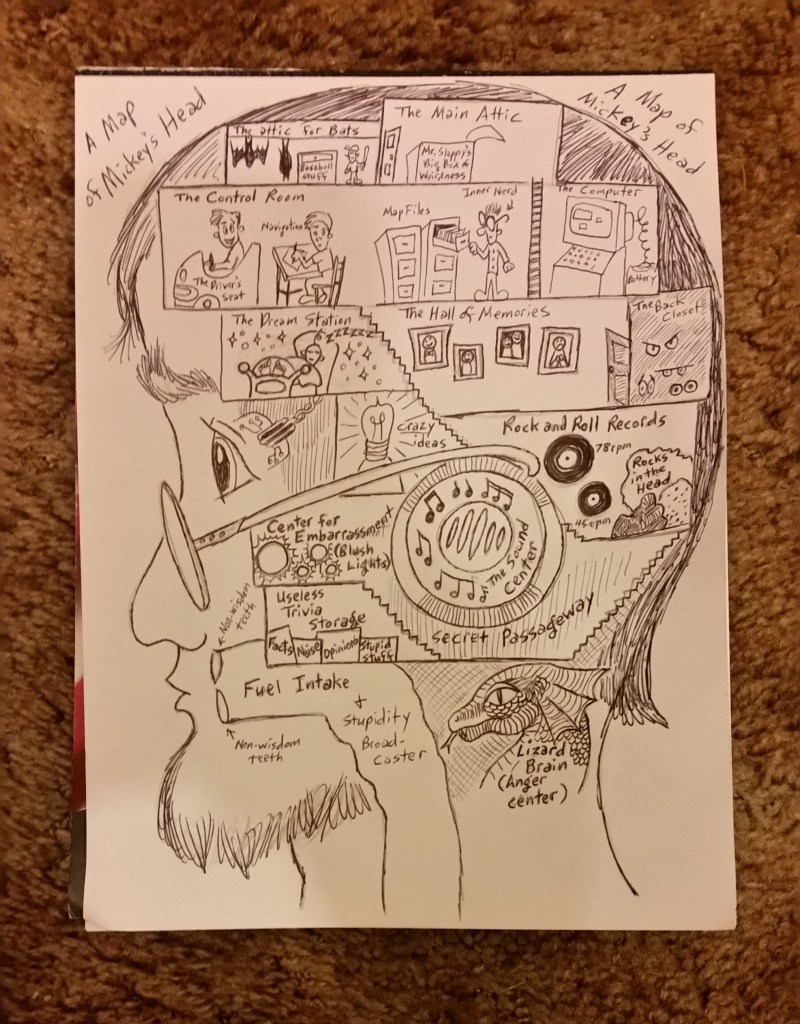 A Map
of Mickey's Head
A Map of
Mickey's Head
The attic for Bats
Baseball
stuff
The Main Attic
Mr. Slappy's
Big Box of
Weirdness
The Control Room
The Driver's
seat
Navigation
Map Files
Inner Nerd
The Computer
Battery
The Dream Station
ZZZZZZZ
The Hall of Memories
The Back
Closet
Crazy
ideas
Rock and Roll Records
78rpm
45rpm
Rocks
in the
Head
Center for
Embarrassment
(Blush
Lights)
The Sound
Center
Useless
Trivia
Storage
Facts
Noise
Opinions
Stupid
Stuff
Secret Passageway
Non-wisdom
teeth
Fuel Intake
+
Stupidity
Broad-
caster
Non-wisdom
teeth
Lizard
Brain
(Anger
center)